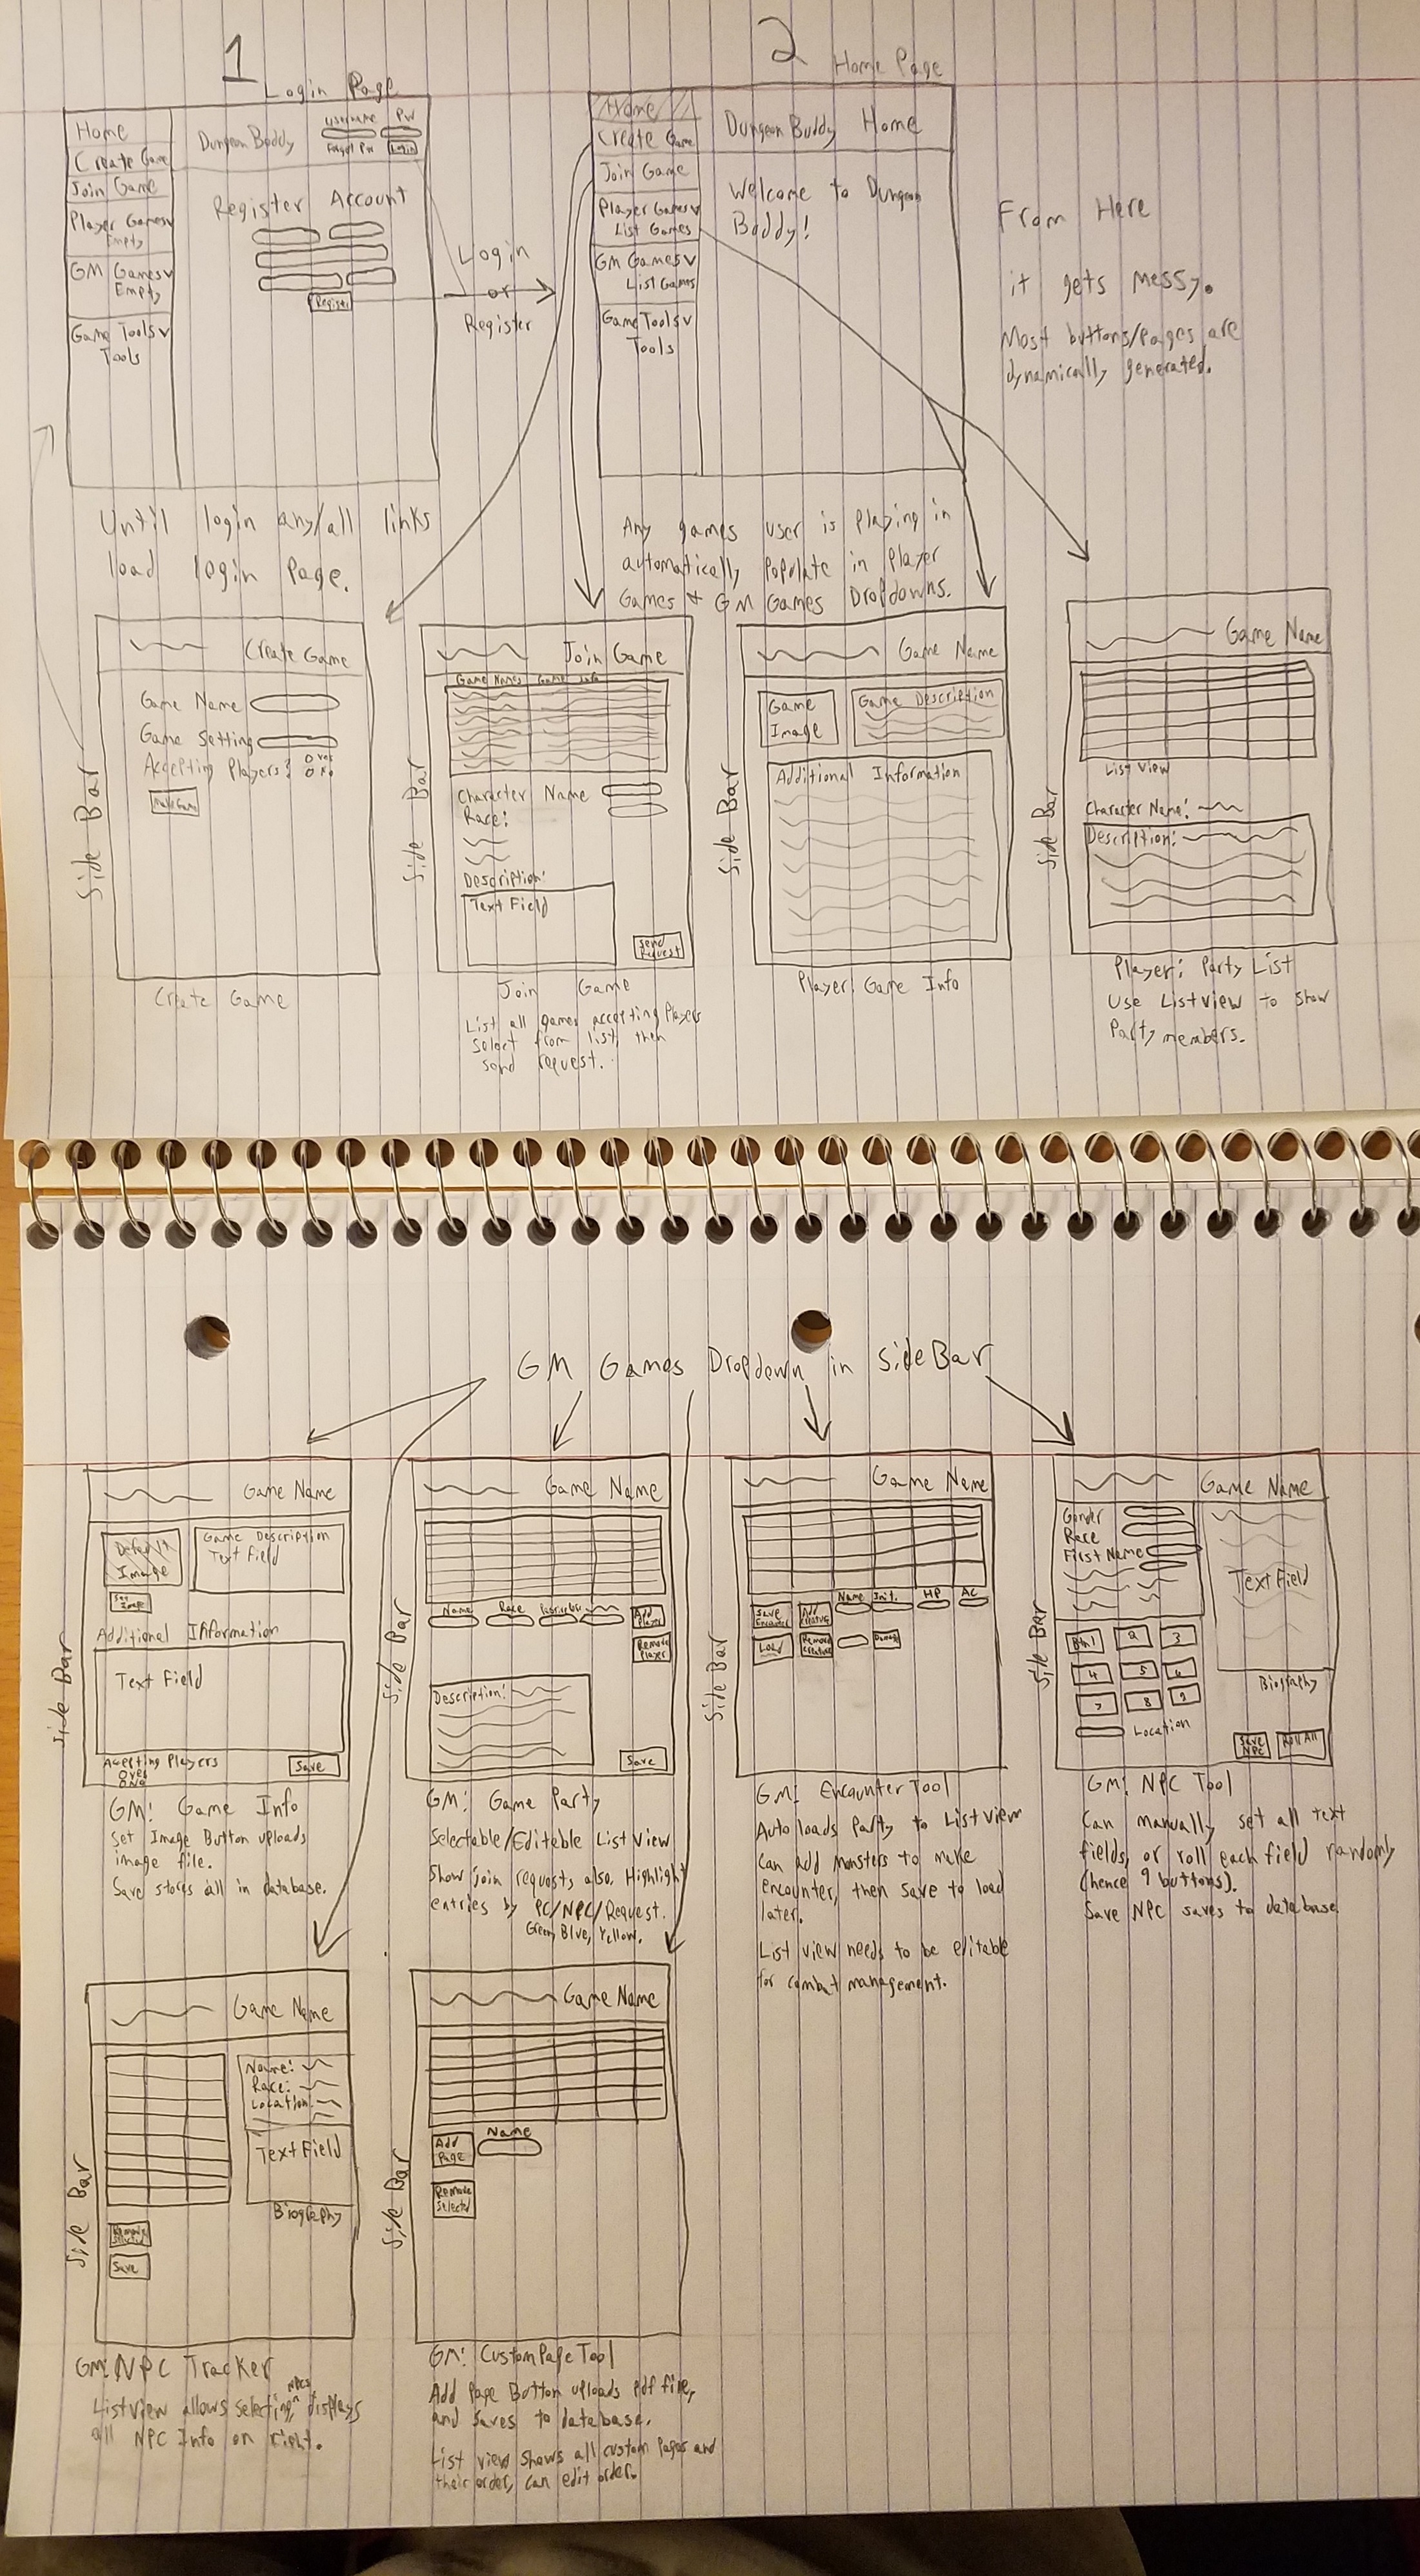 1
Login Page
Home
Create Game
Join Game
Player Games v
Empty
GM Games v
Empty
Game Tools v
Tools
Dungeon Buddy
Username Pw
Forgot Pw Login
Register Account
Register
Login
or
Register
Until login any/all links
load login page.
2
Home Page
Home
Create Game
Join Game
Player Games v
List Games
GM Games v
List Games
Game Tools v
Tools
Dungeon Buddy Home
Welcome to Dungeon
Buddy!
From Here
it gets messy.
Most buttons/pages are
dynamically generated.
Any games user is playing in
automatically populate in Player
Games + GM Games Dropdowns.
Side Bar
Create Game
Game Name
Game Setting
Accepting Players?
Yes
No
Make Game
Create Game
Side Bar
Join Game
Game Names Game Info
Character Name
Race:
Description:
Text Field
Send
Request
Join Game
List all games accepting Players
select from list, then
send request.
Side Bar
Game Name
Game
Image
Game Description
Additional Information
Player: Game Info
Side Bar
Game Name
List View
Character Name:
Description:
Player: Party List
Use Listview to show
Party members.
GM Games Dropdown in SideBar
Side Bar
Game Name
Default
Image
Set
Image
Game Description
Text Field
Additional Information
Text Field
Accepting Players
Yes
No
Save
GM: Game Info
Set Image Button uploads
image file.
Save stores all in database.
Side Bar
Game Name
Name Race
Add
Player
Remove
Player
Description:
Save
GM: Game Party
Selectable/Editable List View
Show join requests also. Highlight
entries by PC/NPC/Request.
Green, Blue, Yellow.
Side Bar
Game Name
Name Init. HP AC
Save
Encounter
Add
Creature
Load
Remove
Creature
Damage
GM: Encounter Tool
Auto loads Party to List view
Can add monsters to make
encounter, then save to load
later.
List view needs to be editable
for combat management.
Side Bar
Game Name
Gender
Race
First Name
Text Field
Btn1 2 3
4 5 6
7 8 9
Biography
Location
Save
NPC
Roll All
GM: NPC Tool
Can manually set all text
fields, or roll each field randomly
(hence 9 buttons).
Save NPC saves to database
Side Bar
Game Name
Name:
Race:
Location:
Text Field
Biography
Remove
Selected
Save
GM: NPC Tracker
Listview allows selecting NPCs, displays
all NPC Info on right.
Side Bar
Game Name
Add
Page
Name
Remove
Selected
GM: Custom Page Tool
Add Page Button uploads pdf file,
and saves to database.
List view shows all custom pages and
their order, can edit order.